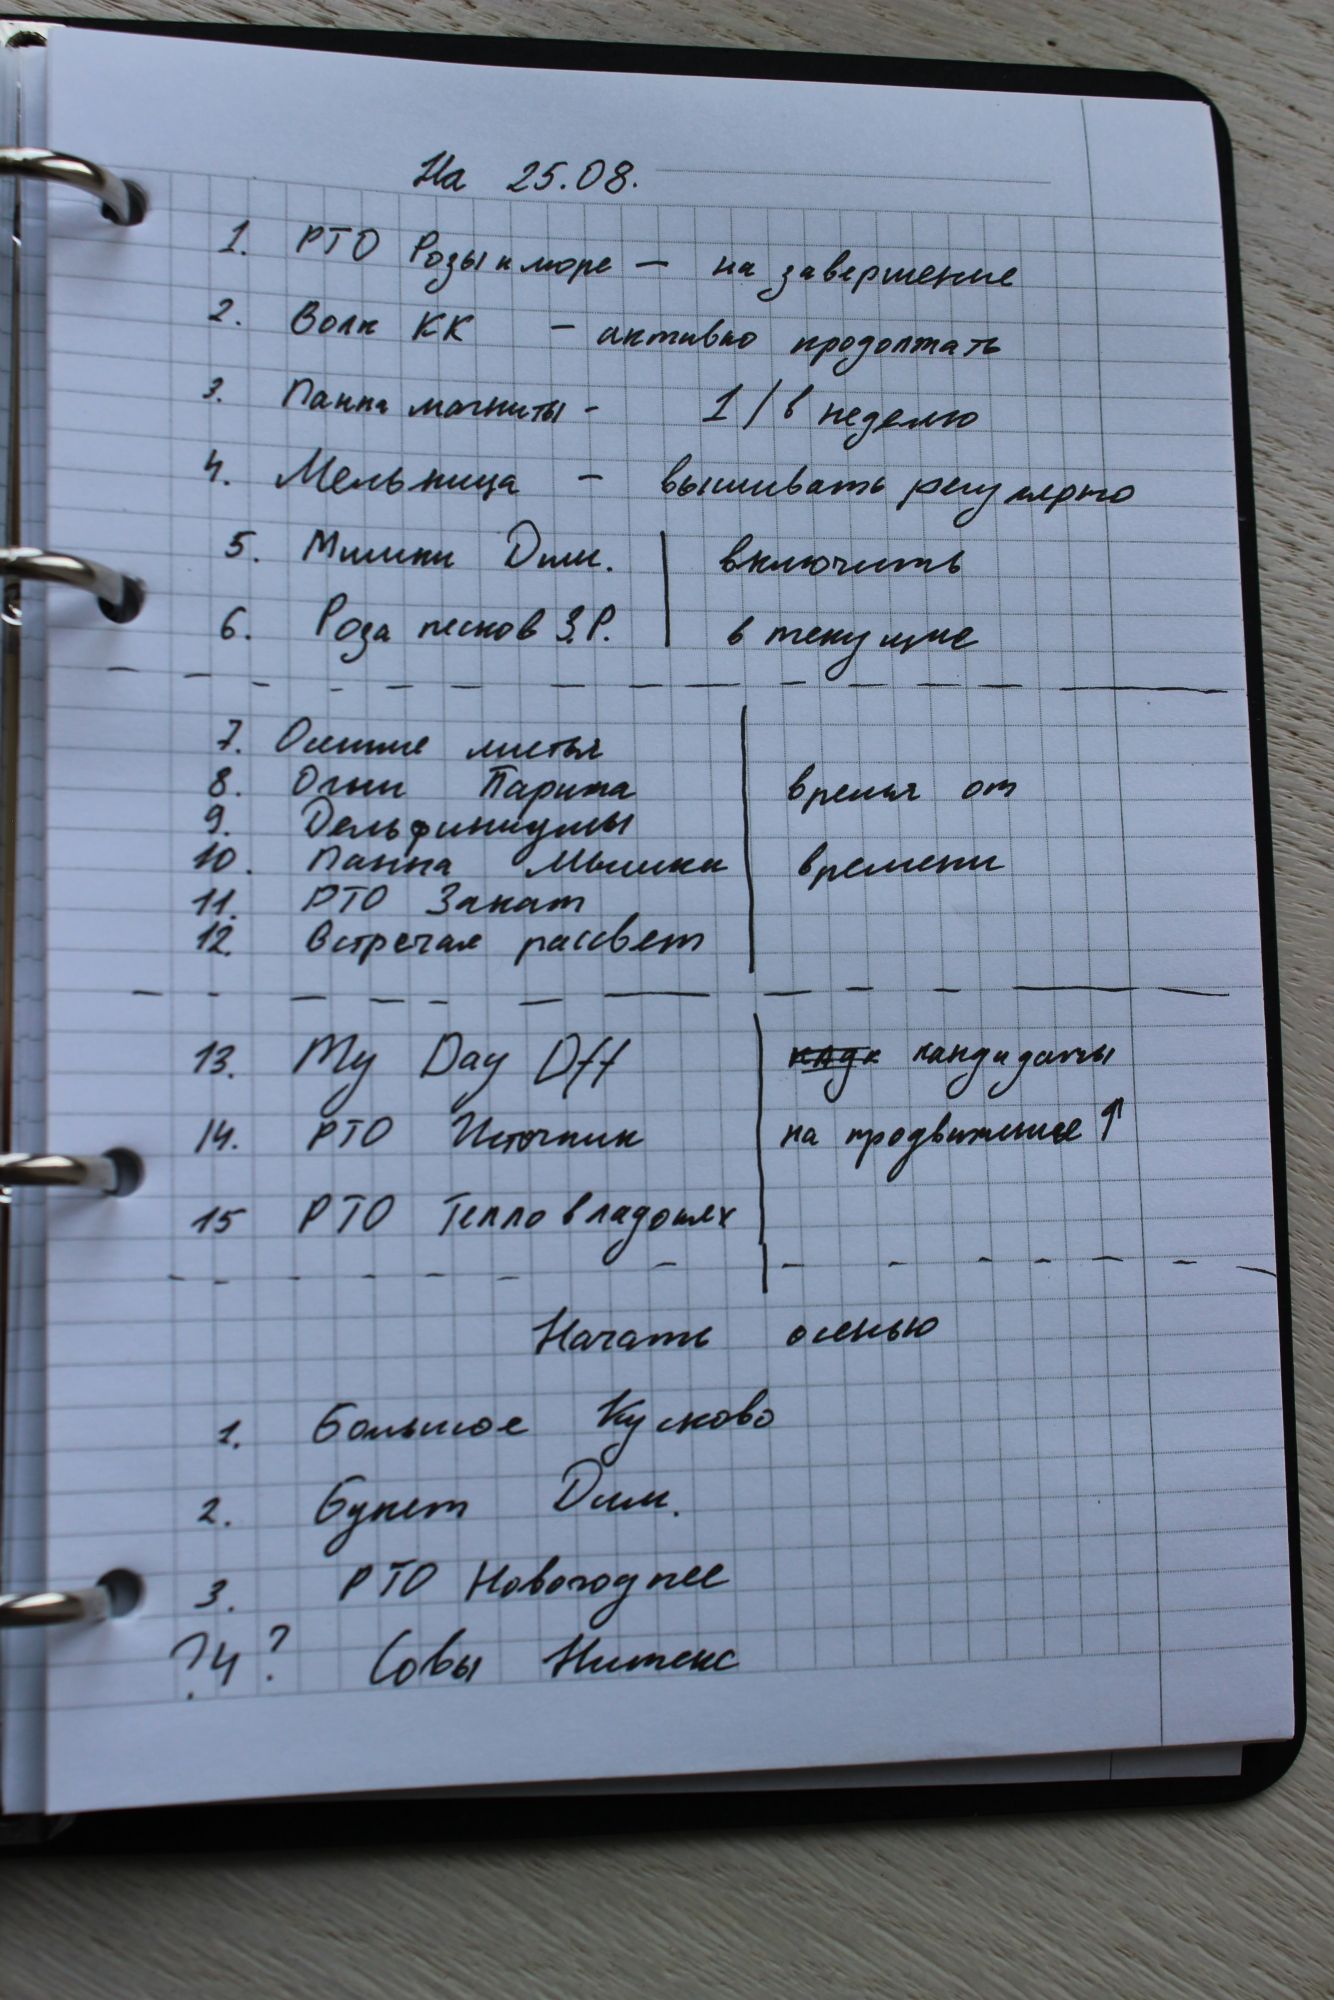 На 25.08.
1. РТО Розы и море - на завершение
2. Волк КК - активно продолжать
3. Панна магниты - 1/в неделю
4. Мельница - вышивать регулярно
5. Мишки Дим. включить
6. Роза песков З.Р. в текущие
7. Осенние листья
8. Огни Парижа время от
9. Дельфиниумы
10. Панна Мышки времени
11. РТО Закат
12. Встречая рассвет
13. My Day Off кандидаты
14. РТО Источник на продвижение ↑
15 РТО Тепло в ладошках
Начать осенью
1. Большое Кусково
2. Букет Дим.
3. РТО Новогоднее
?4? Совы Нитекс